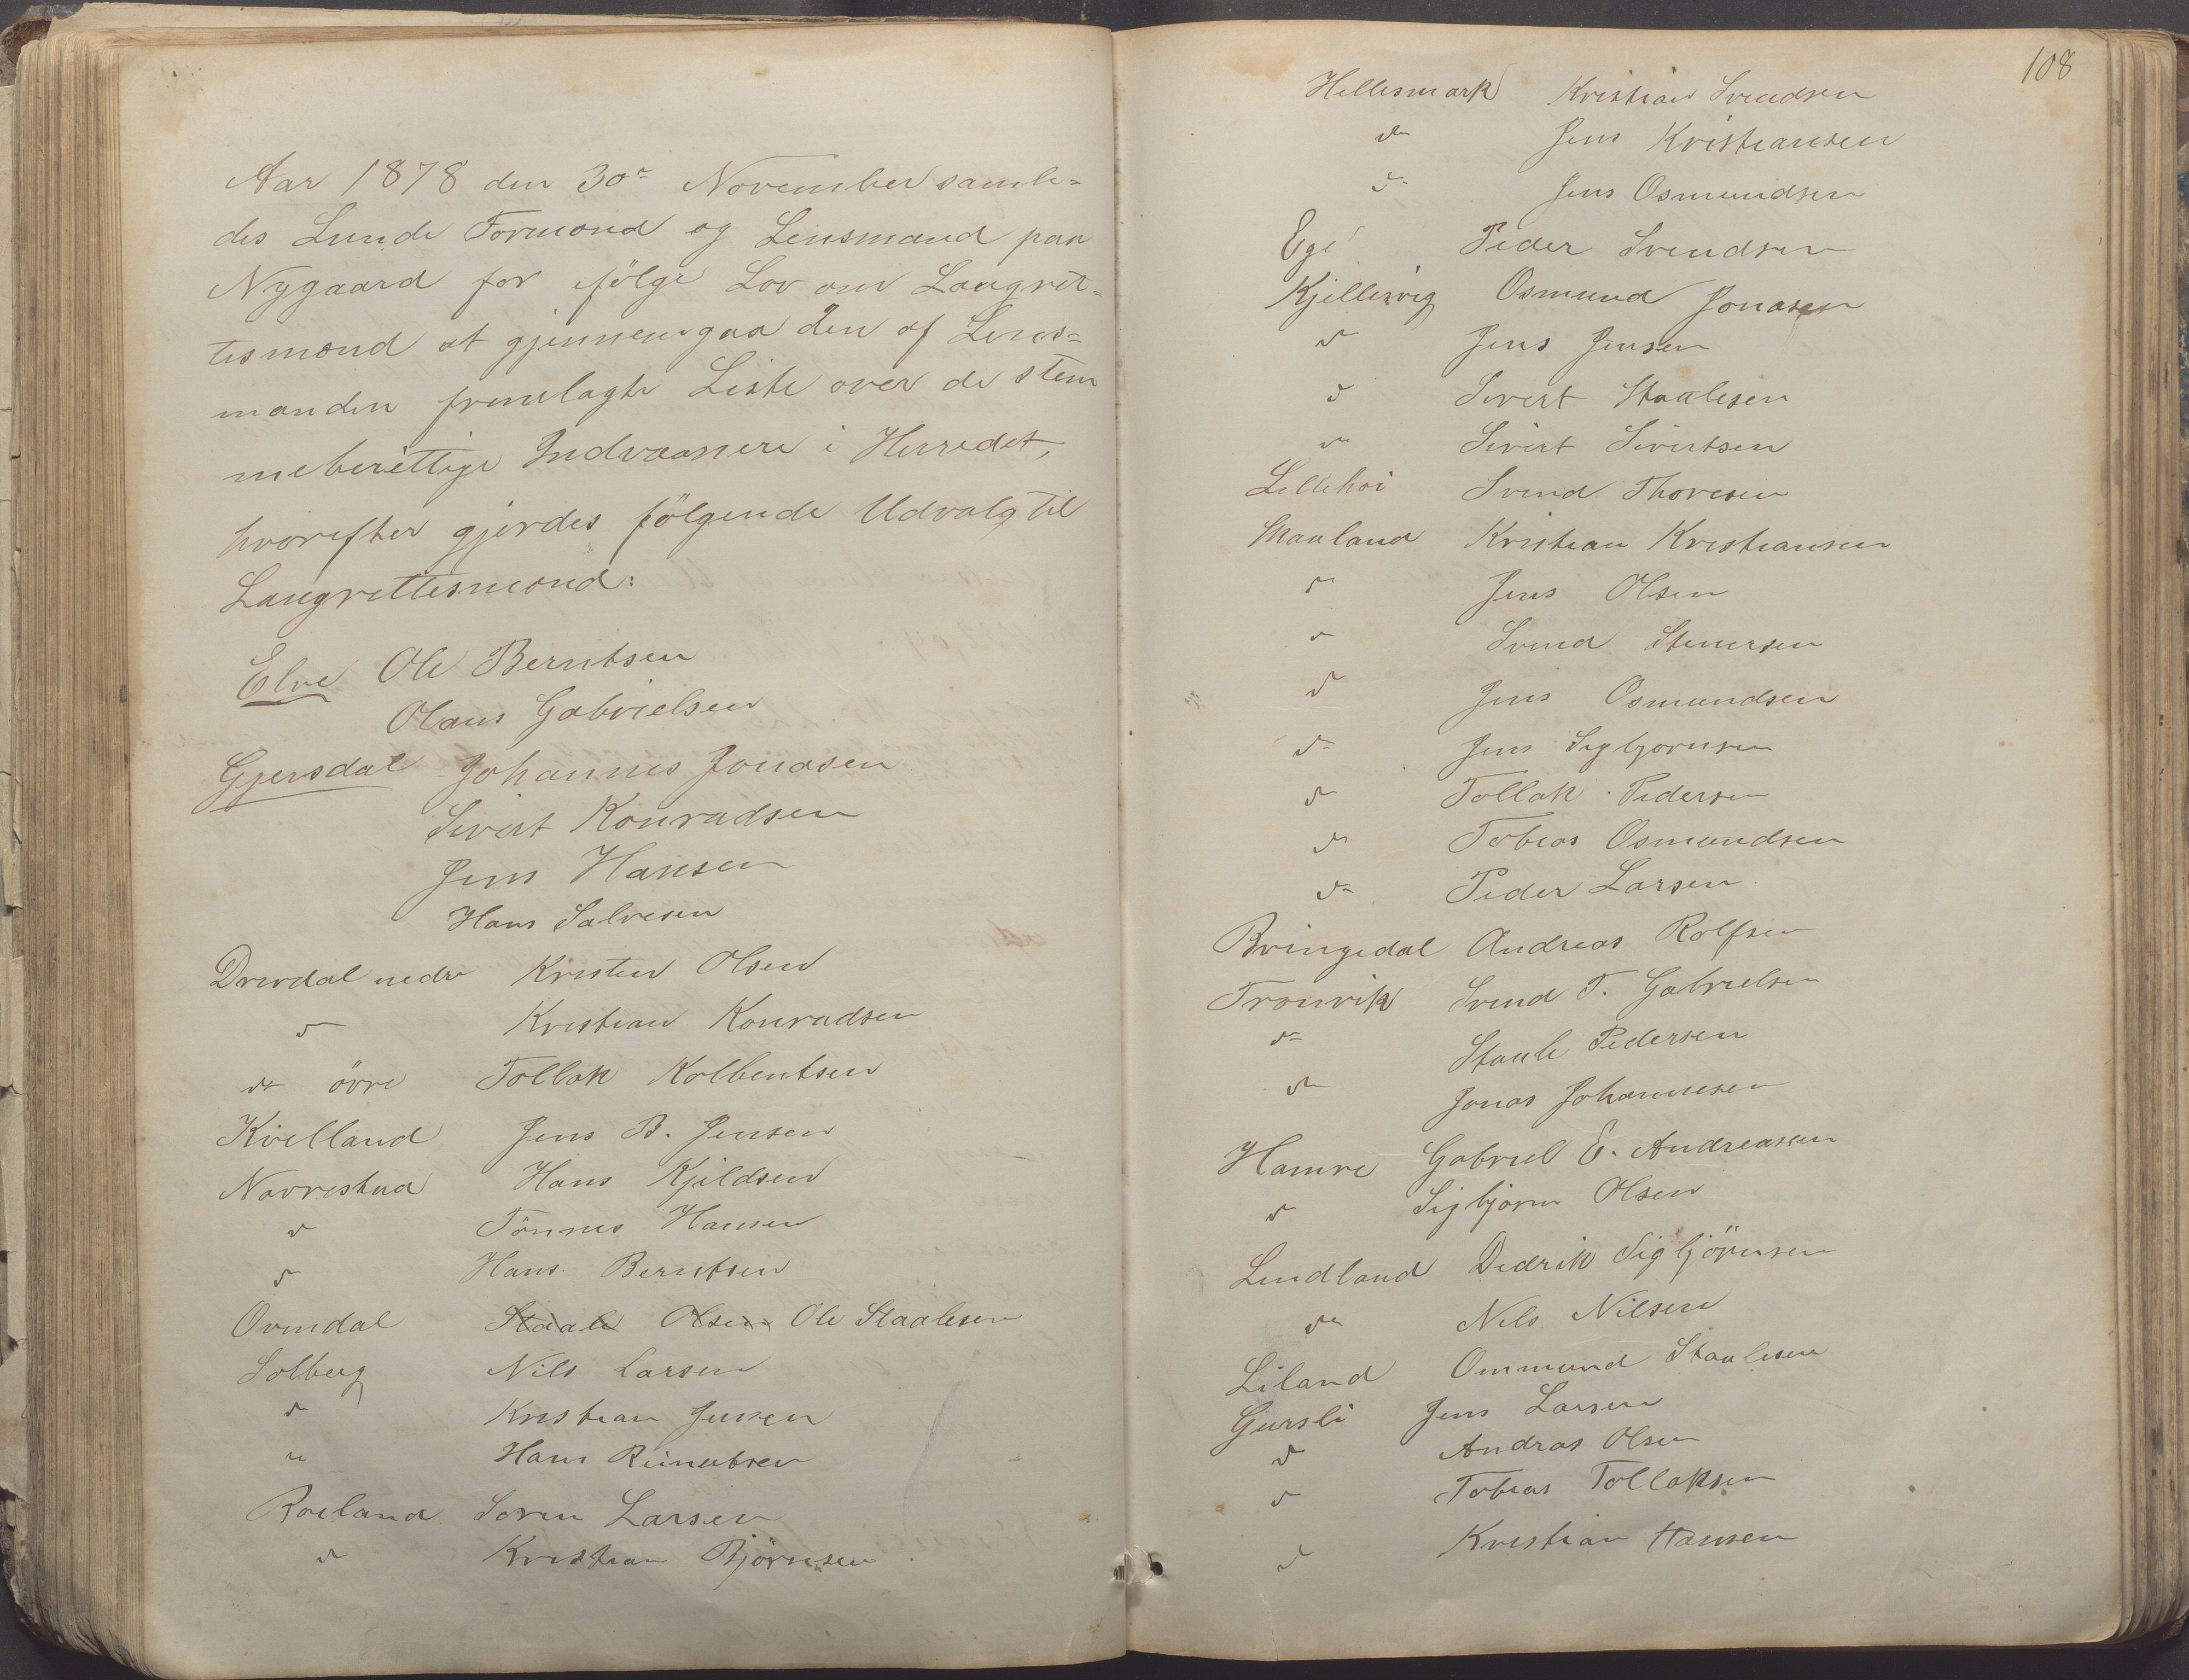 Aar 1878 den 30te November samle-
des Lunde Formænd og Lensmand paa
Nygaard for ifölge Lov om Laugret-
tesmænd at gjennemgaa den af Lens-
manden fremlagte Liste over de stem
meberettige Indvaanere i Herredet,
hvorefter gjordes fölgende Udvalg til
Laugrettesmænd:
Elve Ole Berntsen
Olaus Gabrielsen
Gjersdal Johannes Jonasen
Sivert Konradsen
Jens Hansen
Hans Salvesen
Drivdal nedr Kristen Olsen
do Kristian Konradsen
do övre Tollak Kolbentsen
Kvelland Jens B. Jensen
Navrestad Hans Kjeldsen
do Tönnes Hansen
do Hans Berntsen
Ovindal Staale Olsen Ole Staalesen
Solberg Nils Larsen
do Kristian Jensen
" Hans Reinertsen
Roeland Soren Larsen
do Kristian Björnsen
108
Hellesmark Kristian Svendsen
do Jens Kristiansen
do Jens Osmundsen
Ege Peder Svendsen
Kjellesvig Osmund Jonasen
do Jens Jensen
do Sivert Staalesen
do Sivert Sivertsen
Lillehoi Svend Thoresen
Maaland Kristian Kristiansen
do Jens Olsen
do Svend Stenersen
do Jens Osmundsen
do Jens Sigbjornsen
do Tollak Pedersen
do Tobias Osmundsen
do Peder Larsen
Bringedal Andreas Rolfsen
Tronvik Svend T. Gabrielsen
do Staale Pedersen
do Jonas Johannesen
Hamre Gabriel E. Andreasen
do Sigbjorn Olsen
Lindland Didrik Sigbjörnsen
do Nils Nilsen
Liland Ommund Staalesen
Gursli Jens Larsen
do Andras Olsen
do Tobias Tollaksen
do Kristian Hansen